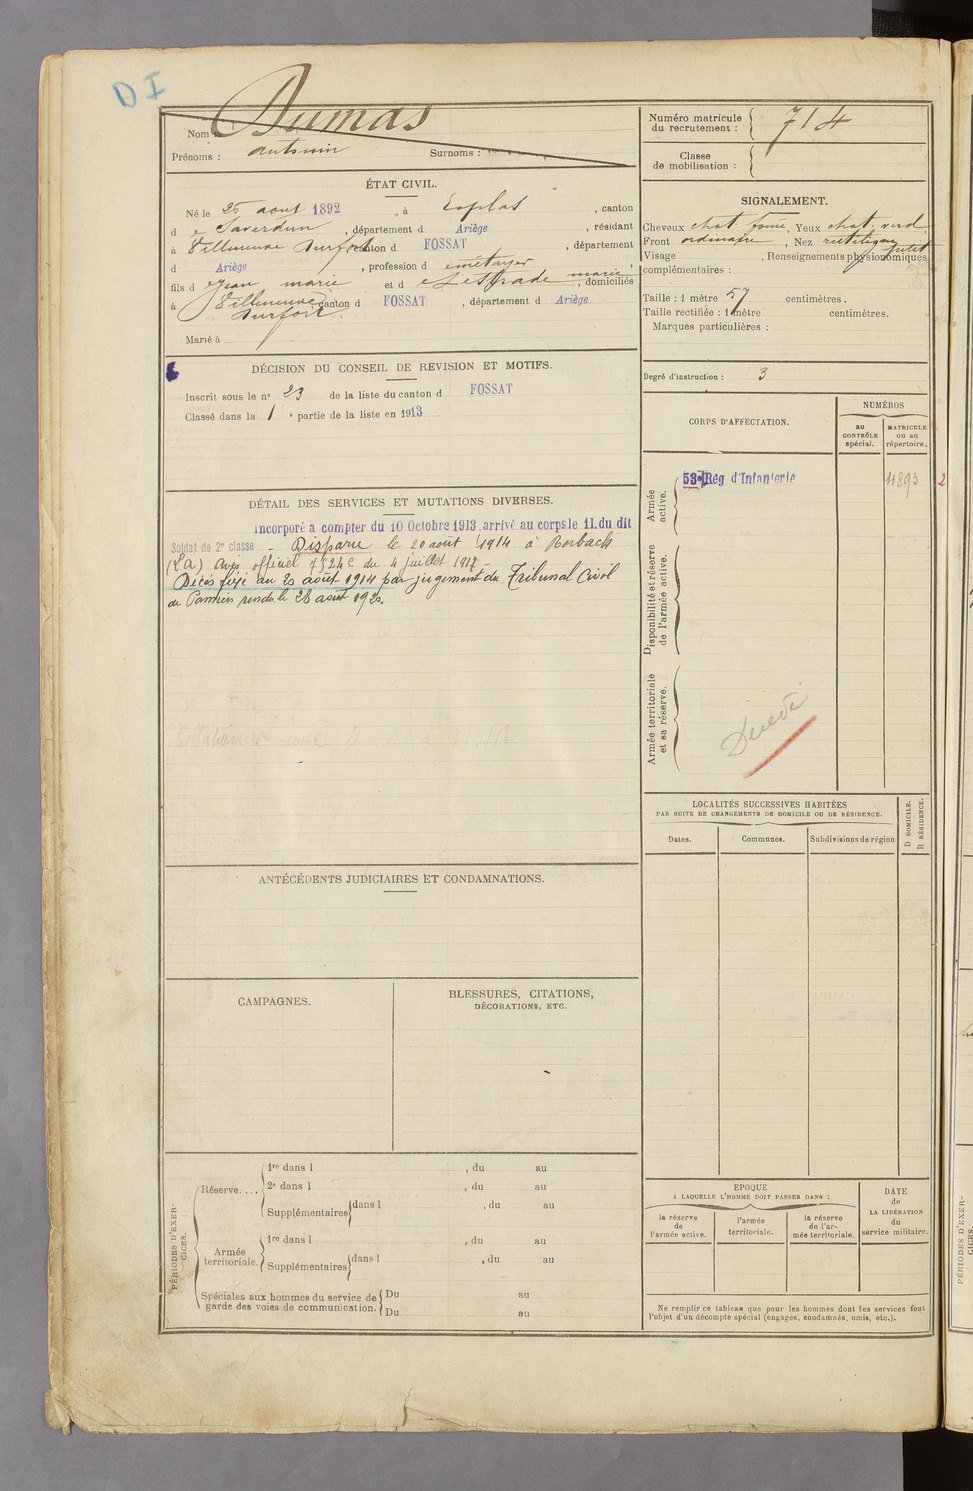 DI
Nom : Dumas
Prénoms : antonin Surnoms :
ÉTAT CIVIL.
Né le 25 aout 1892, à Esplas, canton
d e Saverdun, département d Ariège, résidant
à Villeneuve Durfort canton d FOSSAT, département
d Ariège, profession d métayer
fils d e Jean marie et d e marie, domiciliés
à Villeneuve Durfort, canton d FOSSAT, département d Ariège
Marié à
DÉCISION DU CONSEIL DE REVISION ET MOTIFS.
Inscrit sous le nº 23 de la liste du canton d FOSSAT
Classé dans la 1 e partie de la liste en 1913
DÉTAIL DES SERVICES ET MUTATIONS DIVERSES.
Incorporé à compter du 10 Octobre 1913, arrivé au corps le 11 du dit
Soldat de 2e classe - Disparu le 20 août 1914 à Rorbach
(La) avis officiel du 4 juillet 1917 -
Décès fixé au 20 août 1914 par jugement du Tribunal Civil
de Pamiers rendu le 28 août 1920.
ANTÉCÉDENTS JUDICIAIRES ET CONDAMNATIONS.
CAMPAGNES.
BLESSURES, CITATIONS,
DÉCORATIONS, ETC.
PÉRIODES D'EXERCICES.
Réserve....
1re dans l , du au
2e dans l , du au
Supplémentaires dans l , du au
Armée territoriale.
1re dans l , du au
Supplémentaires dans l , du au
Spéciales aux hommes du service de garde des voies de communication.
Du au
Du au
Numéro matricule
du recrutement : 714
Classe
de mobilisation :
SIGNALEMENT.
Cheveux chat. foncé, Yeux chat. verd.
Front ordinaire, Nez rectiligne petit
Visage , Renseignements physionomiques
complémentaires :
Taille : 1 mètre 57 centimètres.
Taille rectifiée : 1 mètre centimètres.
Marques particulières :
Degré d'instruction : 3
CORPS D'AFFECTATION.
NUMÉROS
au
CONTRÔLE
spécial.
MATRICULE
ou au
répertoire.
Armée active.
Rég d'Infanterie
4893
2
Disponibilité et réserve de l'armée active.
Armée territoriale et sa réserve.
LOCALITÉS SUCCESSIVES HABITÉES
PAR SUITE DE CHANGEMENTS DE DOMICILE OU DE RÉSIDENCE.
Dates.
Communes.
Subdivisions de région
D DOMICILE.
R RÉSIDENCE.
EPOQUE
A LAQUELLE L'HOMME DOIT PASSER DANS :
la réserve
de
l'armée active.
l'armée
territoriale.
la réserve
de l'ar-
mée territoriale.
DATE
de
LA LIBÉRATION
du
service militaire.
Ne remplir ce tableau que pour les hommes dont les services font
l'objet d'un décompte spécial (engagés, condamnés, omis, etc.).
PÉRIODES D'EXER-
CICES.